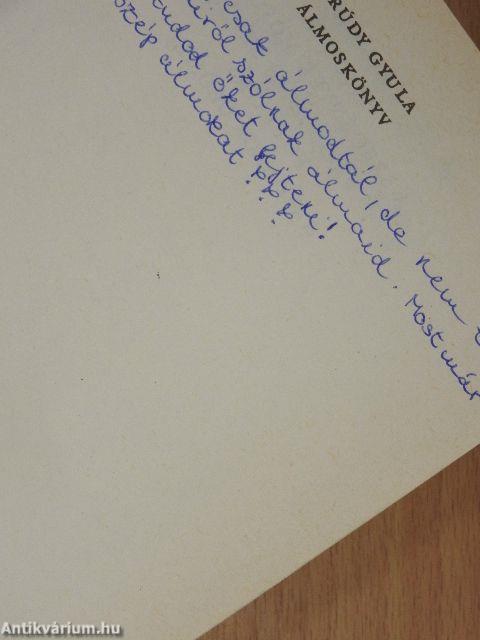 RÚDY GYULA
ÁLMOSKÖNYV
csak álmodtál, de nem
ről szólnak álmaid. Most már
tudod őket fejteni!
szép álmokat!
Antikvárium.hu